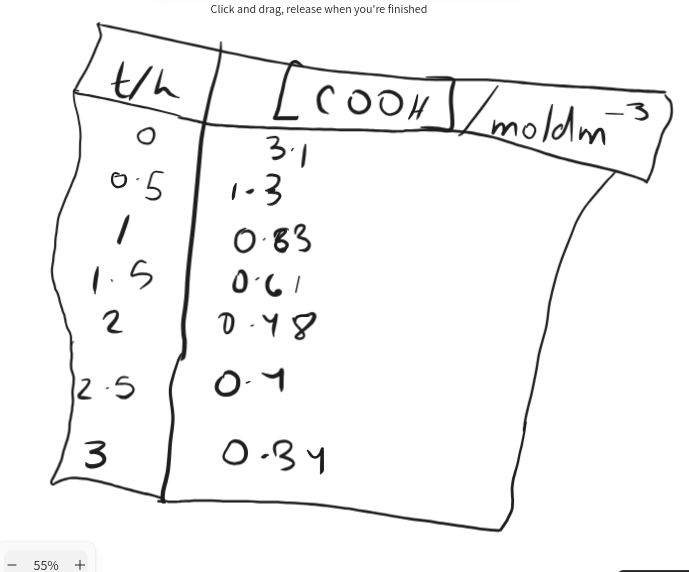 Click and drag, release when you're finished
t/h [COOH]/moldm⁻³
0 3.1
0.5 1.3
1 0.83
1.5 0.61
2 0.48
2.5 0.4
3 0.34
− 55% +